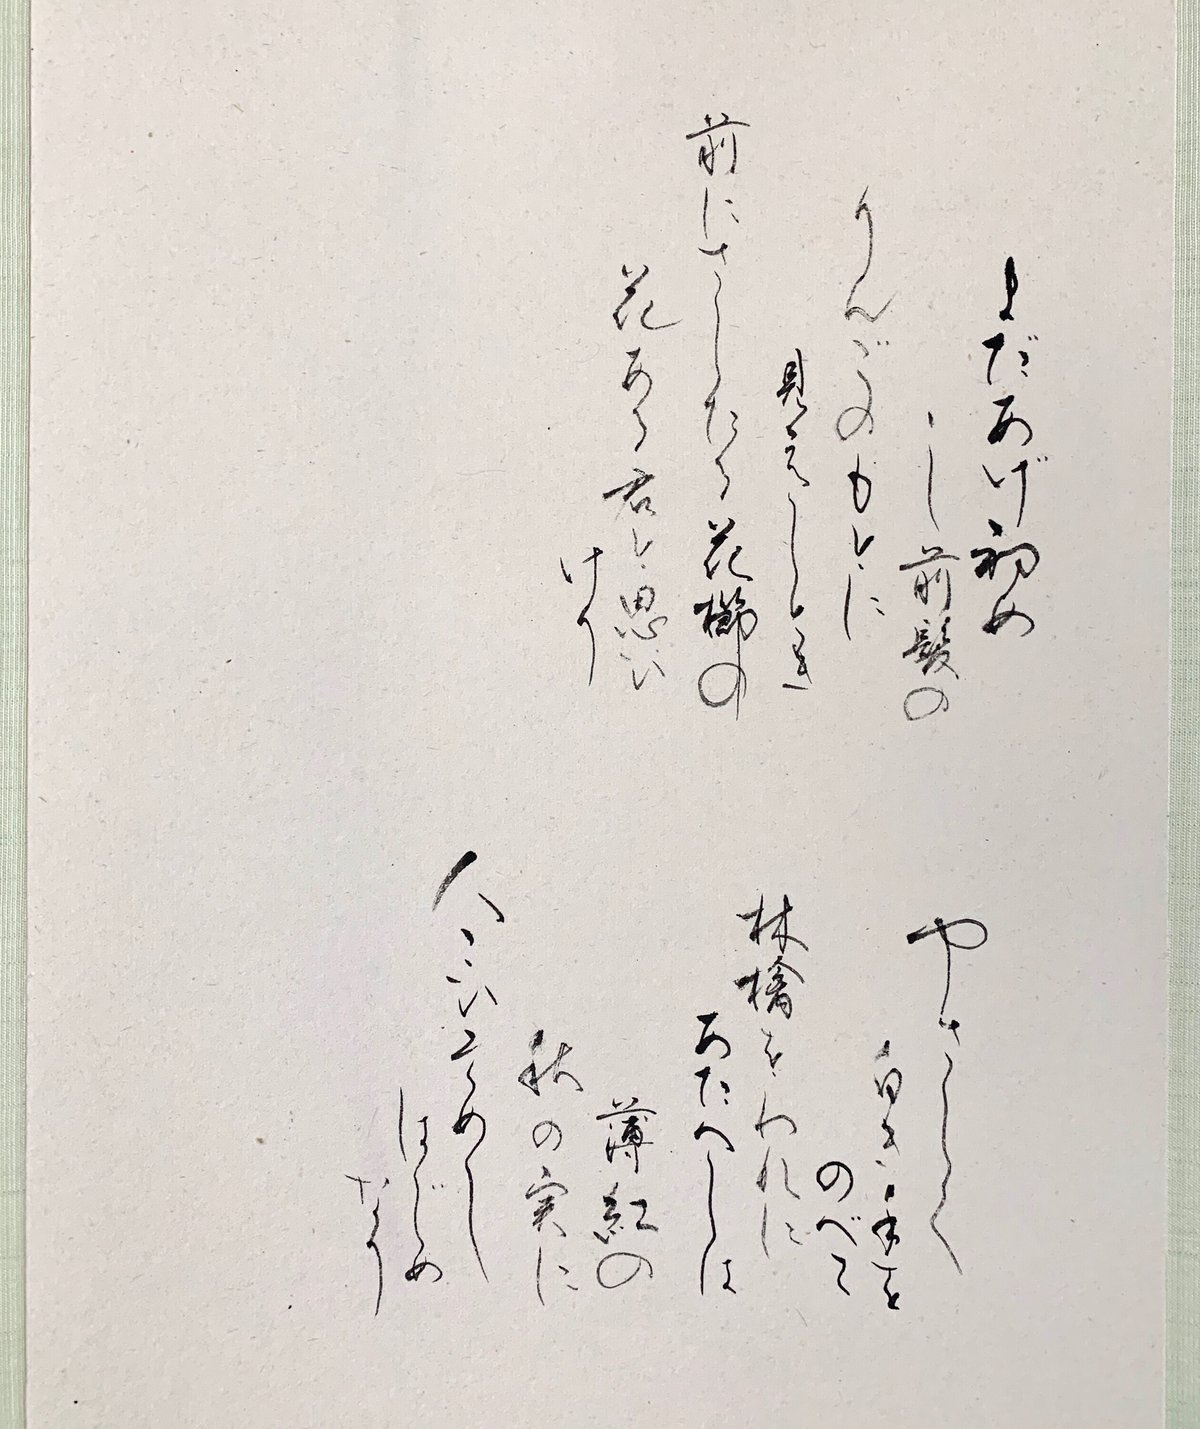 まだあげ初め
し前髪の
りんごのもとに
見えしとき
前にさしたる花櫛の
花ある君と思い
けり
やさしく
白き手を
のべて
林檎をわれに
あたへしは
薄紅の
秋の実に
人こい そめし
はじめ
なり